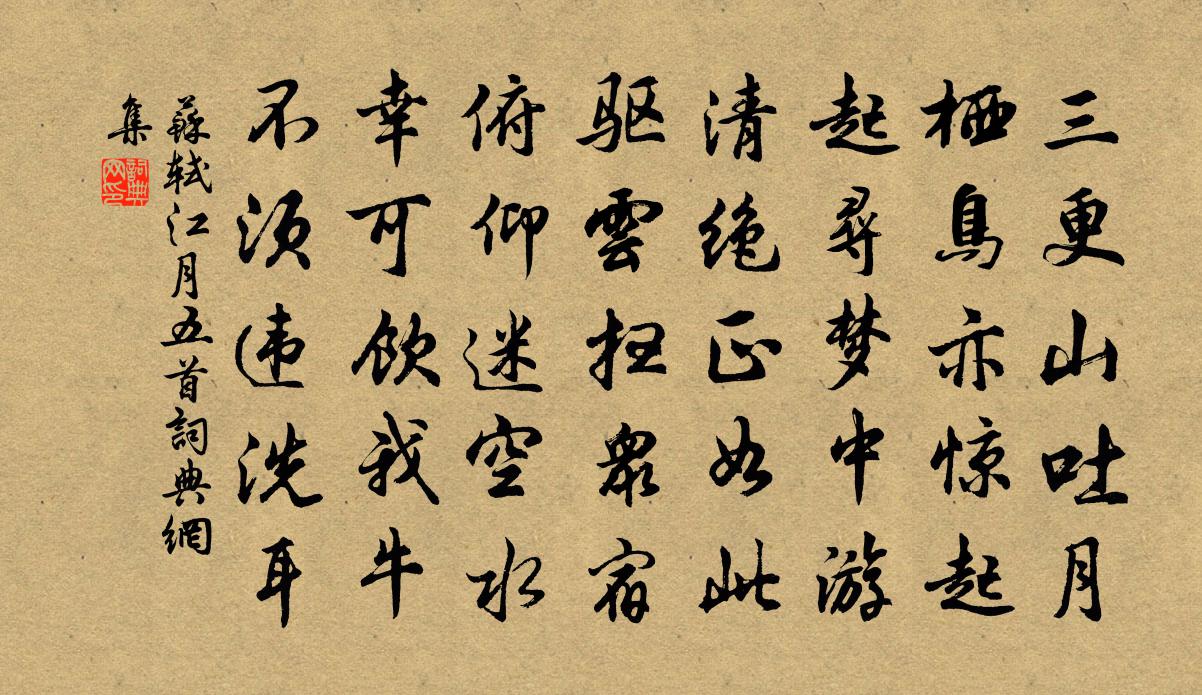 三更山吐月
栖鳥亦惊起
起尋梦中游
清绝正如此
驱雲扫衆宿
俯仰迷空水
幸可飲我牛
不须违洗耳
蘇轼江月五首詞典網
集
詞典网印